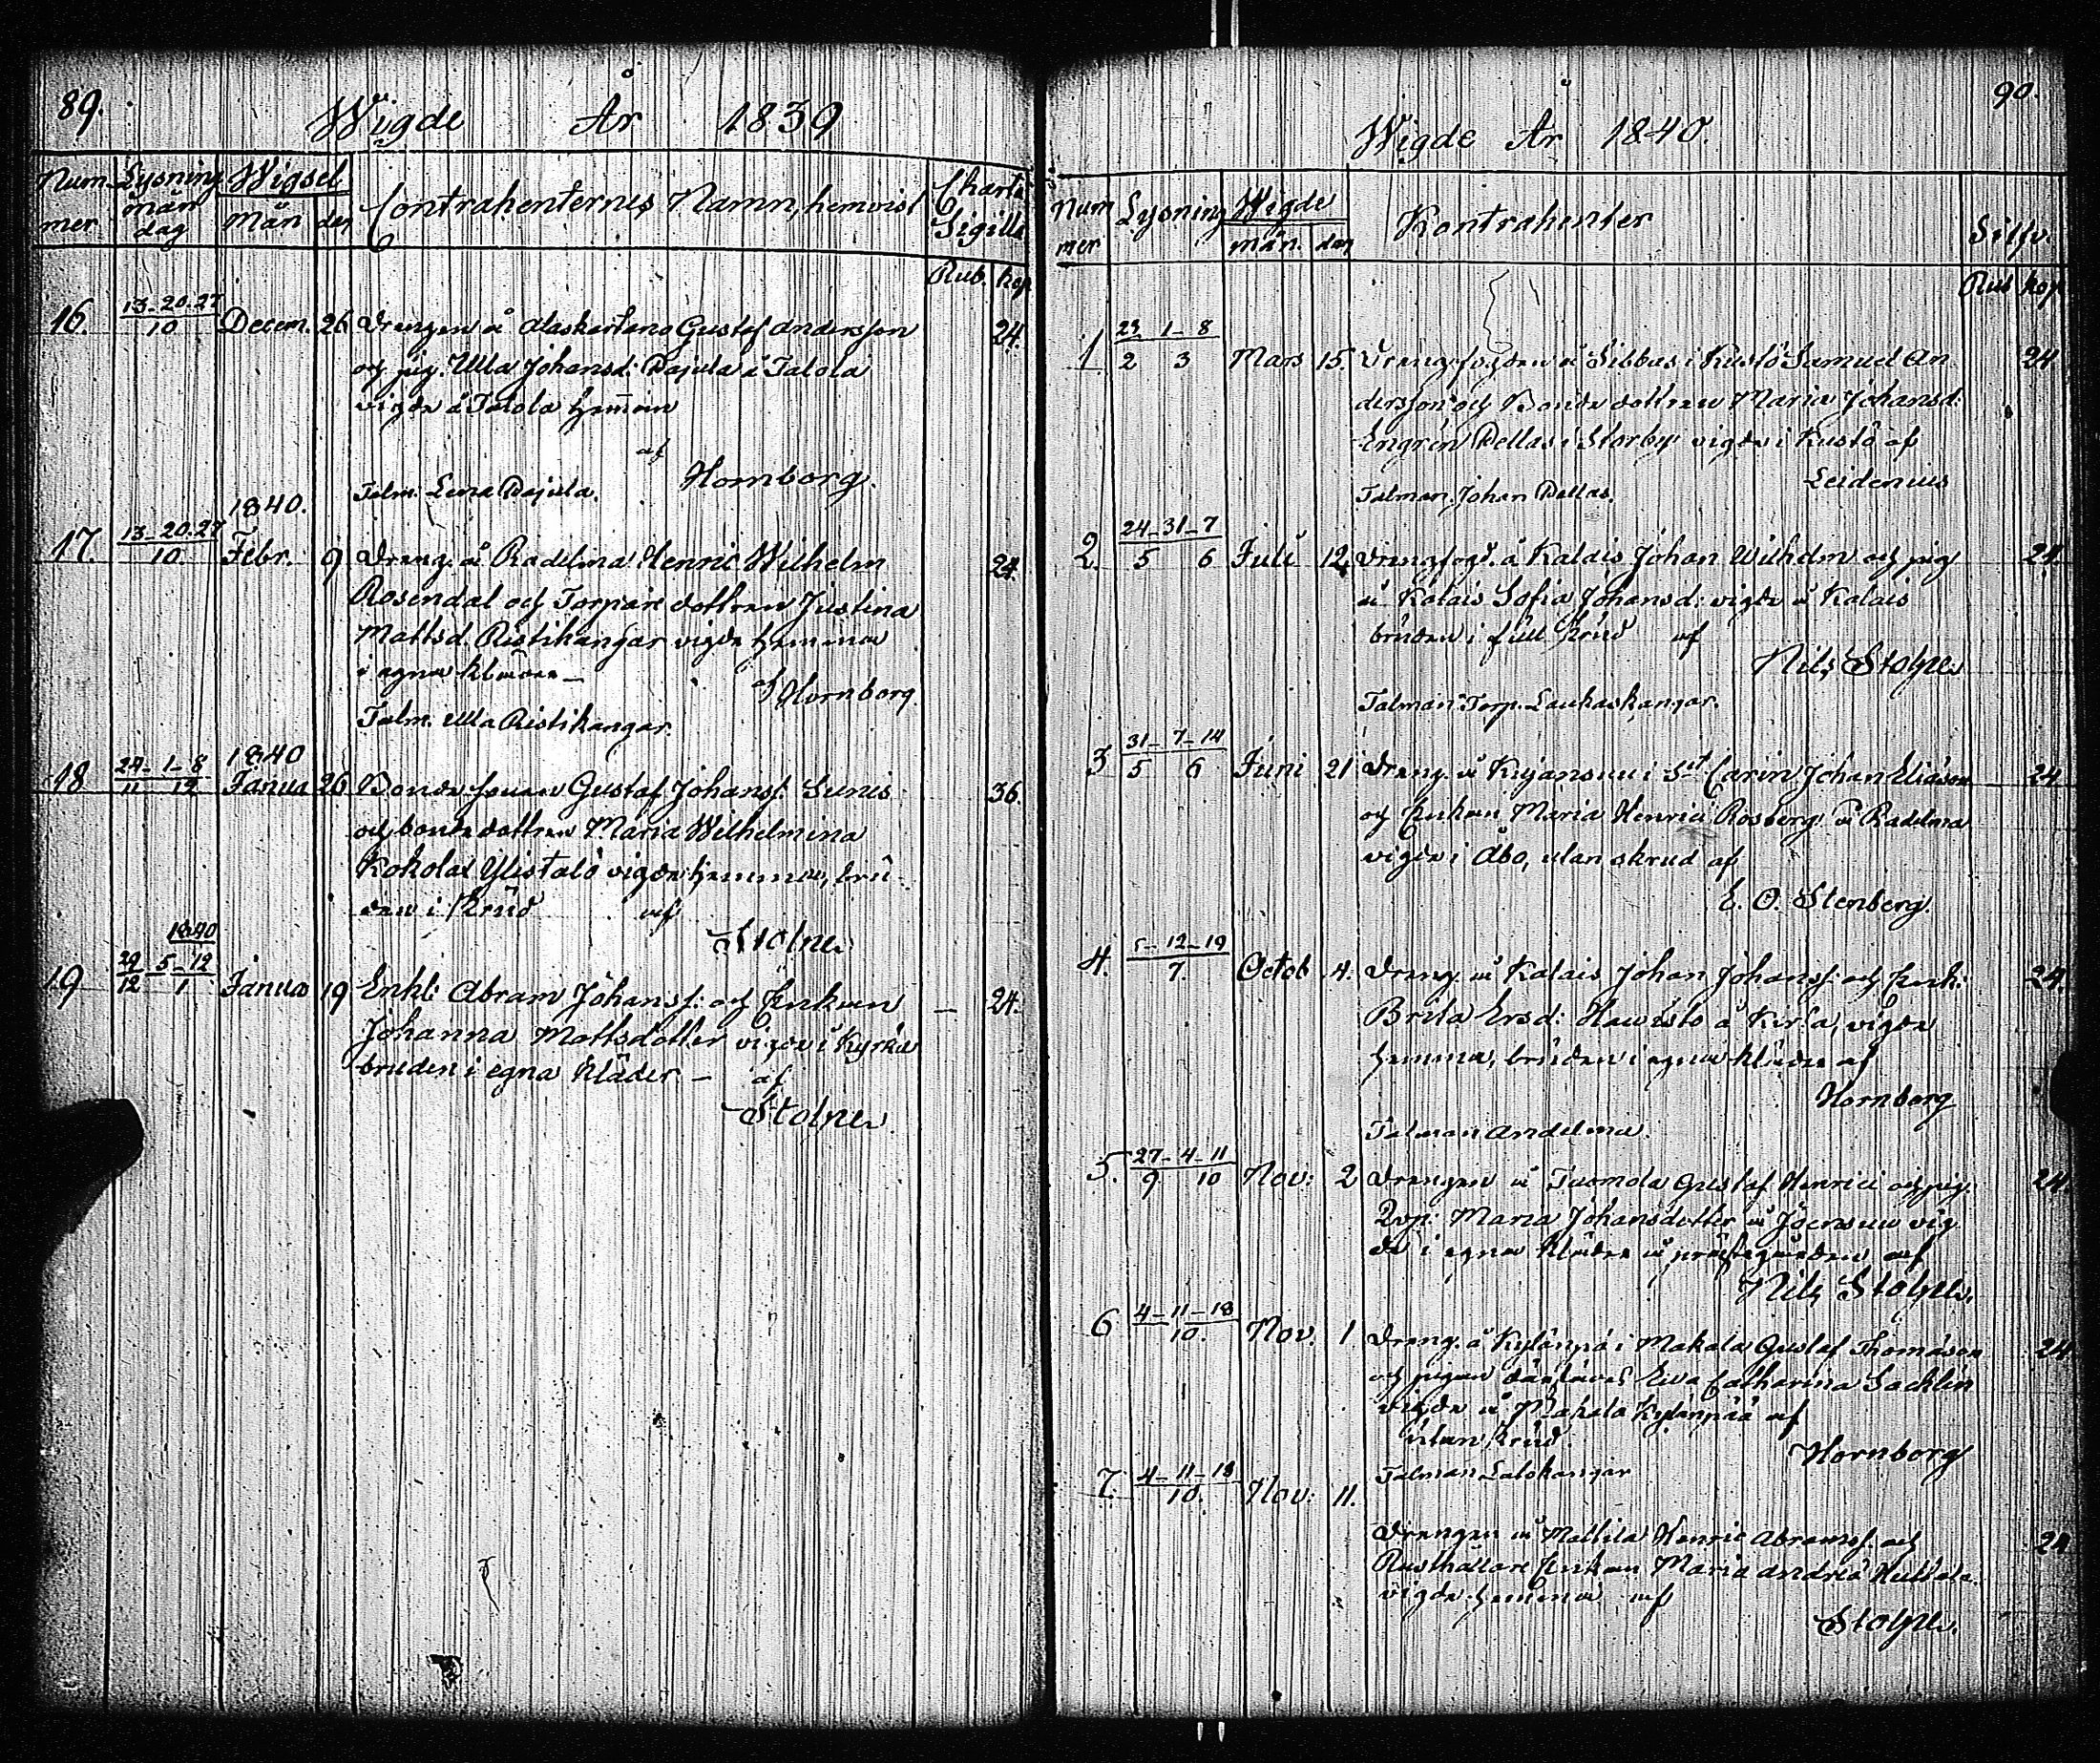 89.
Wigde År 1839
Num mer
Lysning mån dag
Wigsel mån den
Contrahenternes Namn, hemvist
Charta Sigilla
Rub. kop
16. 13-20-27/10 Decem. 26 Drengen å Alaskartano Gustaf Andersson 24.
och pig. Ulla Johansd. Pajula å Talola
vigde å Talola hemman
af
Talm. Lena Pajula. Hornborg.
1840.
17. 13-20-27/10. Febr. 9 Dreng. å Radelma Henric Wilhelm 24.
Rosendal och Torpare dottren Justina
Mattsd. Ristikangar vigde hemma
i egna kläder
af Hornborg
Talm. Ulla Ristikangar.
1840
18 24-1-8/11 12 Janua 26 Bonde sonen Gustaf Johanss. Sunis 36.
och bonde dottren Maria Wilhelmina
Kokola Ylistalo vigde hemma, bru
den i skrud af
Stolpe
1840
19 29-5-12/12 1 Janua 19 Enkl. Abram Johanss. och Enkan — 24.
Johanna Mattsdotter vigde i Kyrka
bruden i egna kläder — af
Stolpe
90.
Wigde År 1840.
Num mer
Lysning
Wigde mån. dag
Kontrahenter
Silfv.
Rub kop
1 23 1-8/2 3 Mars 15. Drengfogden å Sibbas i Kustö Samuel An 24
dersson och Bonde dottren Maria Johansd.
Engrén Pellas i Storby vigde i Kustö af
Leidenius
Talman Johan Pellas.
2. 24-31-7/5 6 Juli 12 Drengfogd. å Kalais Johan Wilhelm och pig 24
å Kalais Sofia Johansd. vigde å Kalais
bruden i full skrud af
Nils Stolpe
Talman Torp. Laukaskangar.
3 31-7-14/5 6 Juni 21 Dreng. å i St Carin Johan Eliasson 24
och Enkan Maria Henrici Rosberg å Radelma
vigde i Åbo, utan skrud af
E. O. Stenberg.
4. 5-12-19/7. Octob 4. Dreng. å Kalais Johan Johanss. och Enk. 24.
Brita Ersd. Hawisto å Kirja, vigde
hemma, bruden i egna kläder af
Hornborg
Talman Andelma.
5. 27-4-11/9 10 Nov: 2 Drengen å Tuomola Gustaf Henrici och pig. 24
Maria Johansdotter å Joensuu vig
de i egna kläder å prästegården af
Nils Stolpe.
6 4-11-18/10. Nov. 1 Dreng. å Kylänpä i Makala Gustaf Thomasson 24
och pigan därstädes Ewa Catharina Sachlin
vigde å Makala Kylänpää af
utan skrud.
Hornborg
Talman Salokangar
7. 4-11-18/10. Nov: 11.
Drengen å Mattila Henric Abramss. och 24
Rusthållare Enkan Maria Andreä
vigde hemma af
Stolpe.